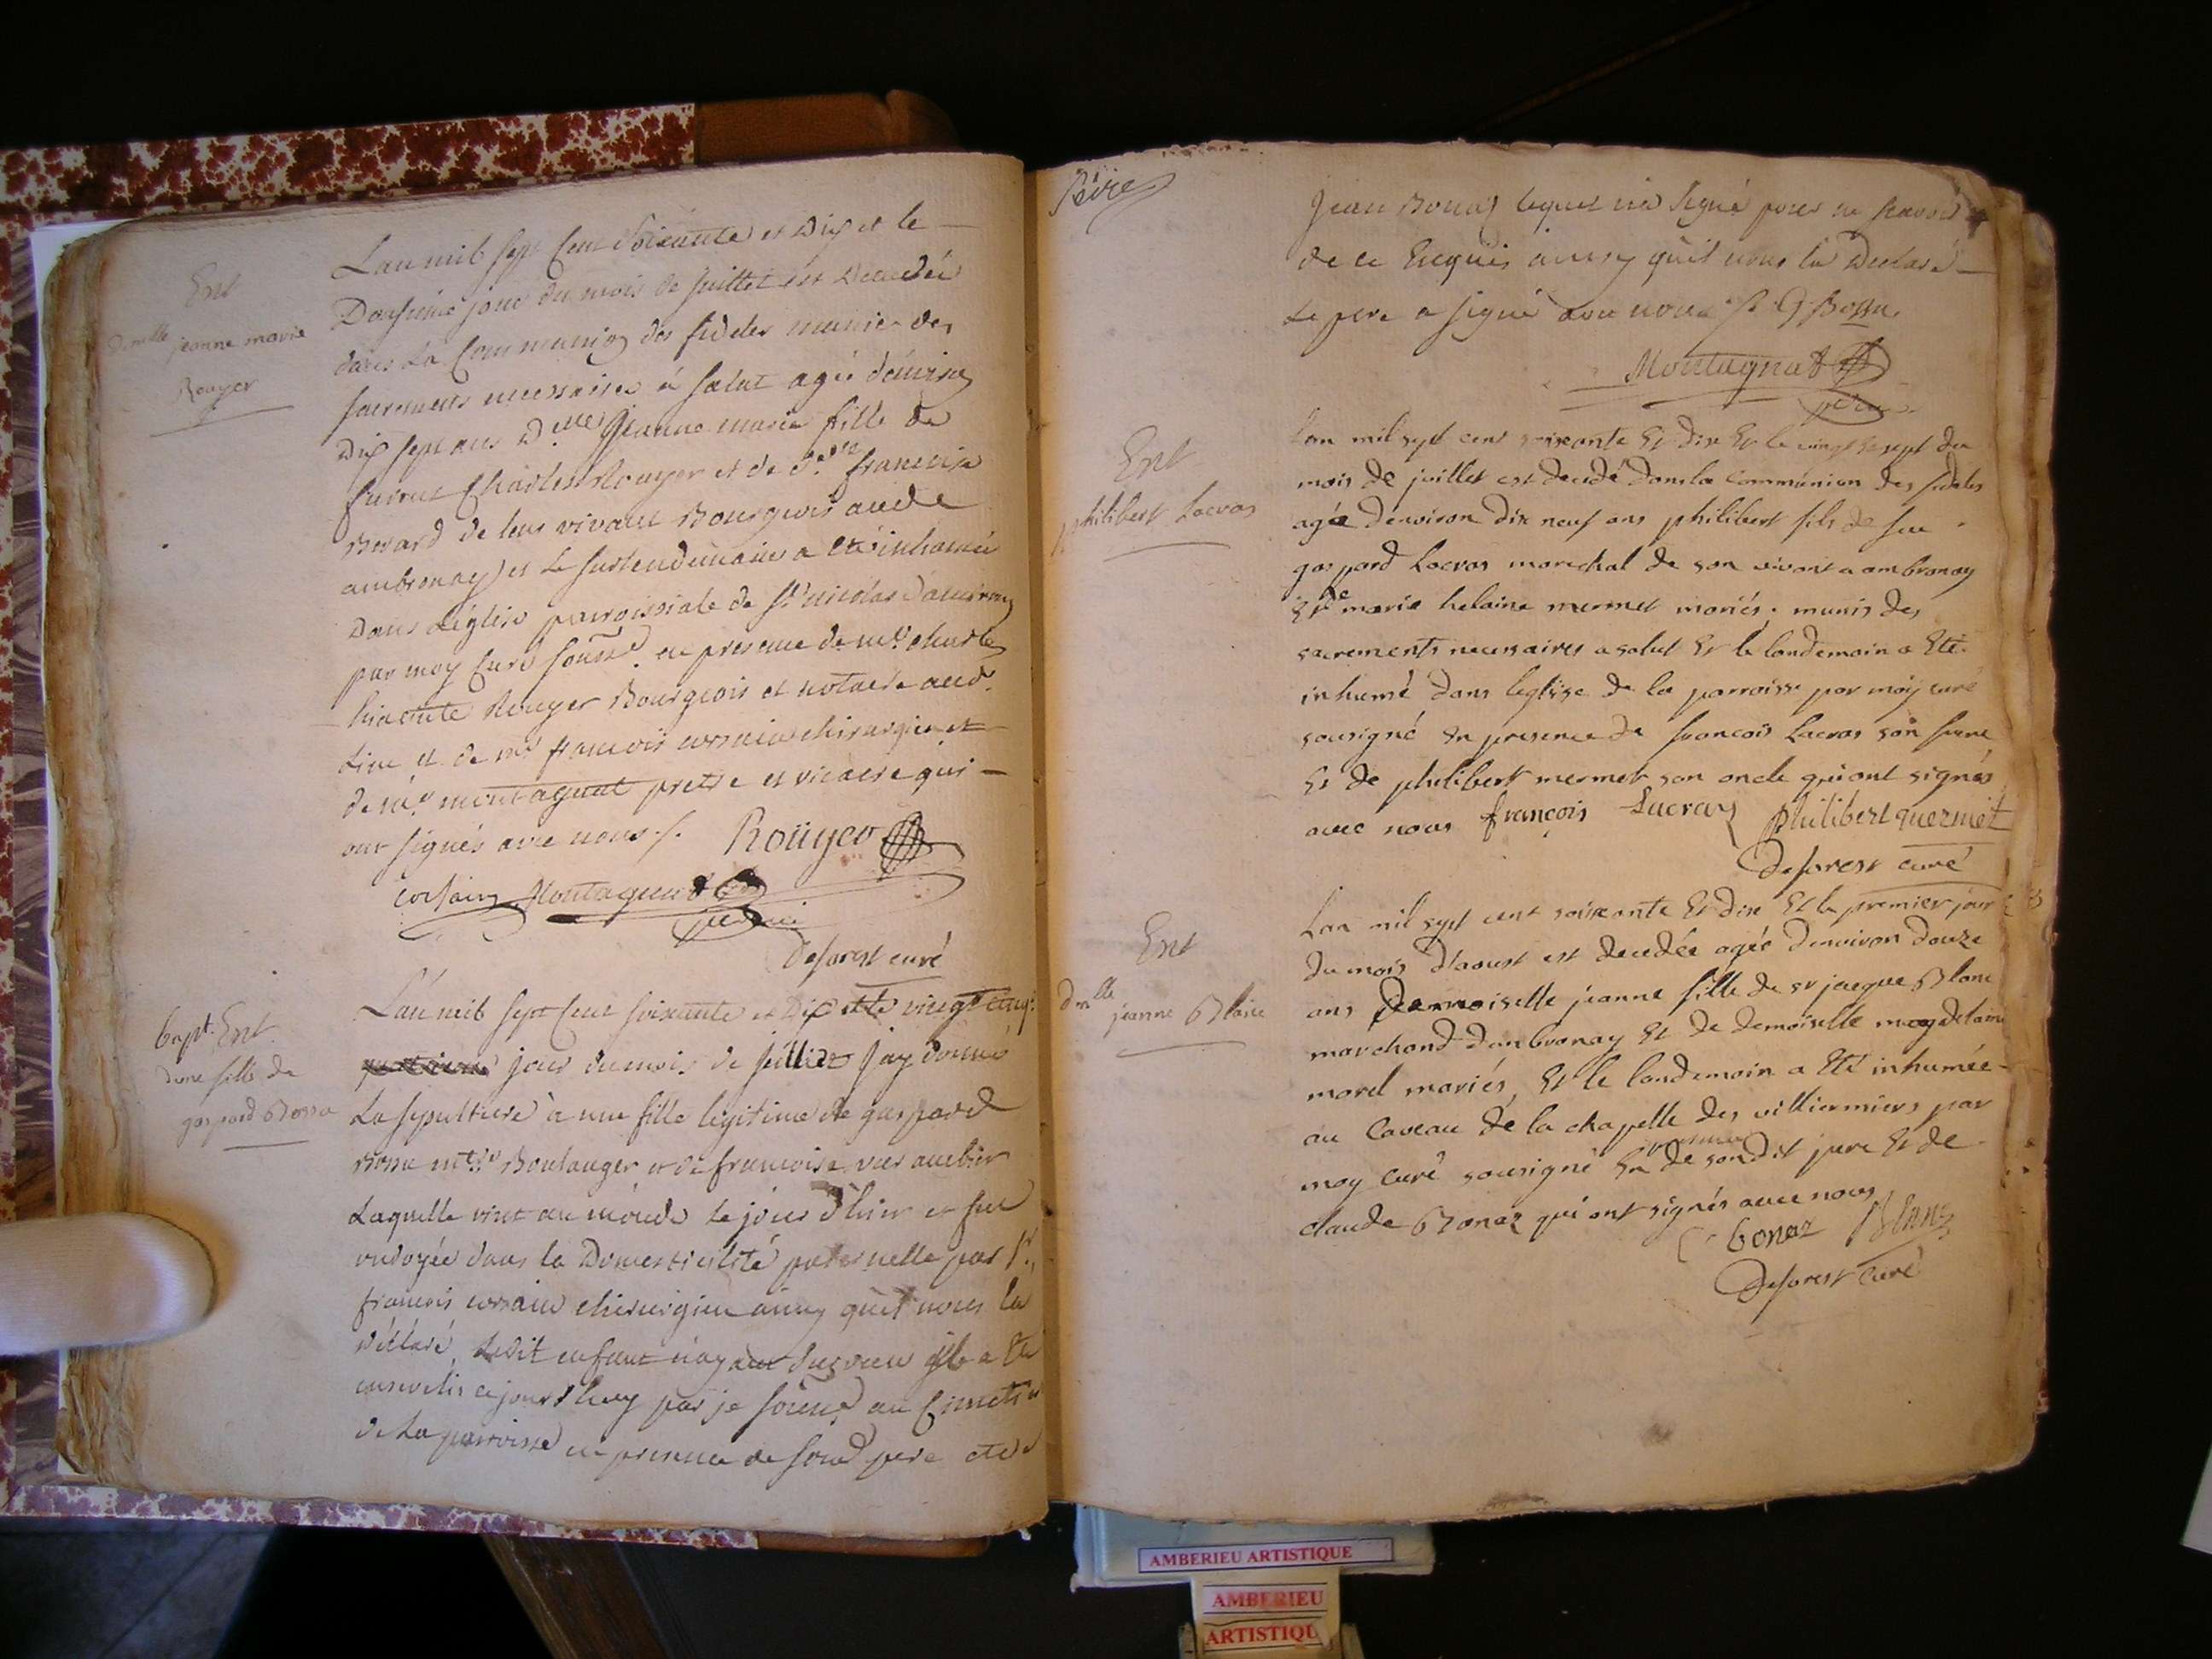 Ent
Dmlle jeanne marie
Rouyer
L'an mil sept Cent Soixante et Dix et le
Douzieme jour du mois de juillet est Decedée
dans La Communion des fideles munie des
sacrements necessaires à salut agée d'environ
Dix sept ans Dlle jeanne marie fille de
furent Charles Rouyer et de françoise
Berard de leur vivant Bourgeois aude
ambronay et Le surlendemain a été inhumée
Dans L'église parroissiale de st nicolas d'ambronay
par moy Curé sousse en presence de me charles
hiacinte Rouyer Bourgeois et notaire aud.
Lieu et de mr françois corsain chirurgien et
de mre montagnat pretre et vicaire qui
ont signés avec nous /.
Roüyer
corsain Montagnat
deforest curé
bapt. Ent
d'une fille de
gaspard Bossu
L'an mil sept Cent soixante et Dix et le vingt cinq
jour du mois de juillet j'ay donné
La sepulture à une fille legitime de gaspard
Bossu Boulanger et de francoise
Laquelle vint au monde le jour d'hier et fut
ondoyée dans la Domesticilité paternelle par sr
francois corsain chirurgien ainsy qu'il nous la
déclaré, Ledit enfant n'ayant il a été
ensevelis ce jourd'huy par je soussé au Cimetiere
de La parroisse en presence de soud pere et de
Jean Bonaz lequel n'a signé pour ne scavoir
de ce Enquis ainsy qu'il nous la Declaré
Le pere a signé avec nous /. G Bossu
Montagnat
Ent
philibert Lacras
L'an mil sept cent soixante Et dix Et le vingt sept du
mois de juillet est decedé dans la communion des fideles
agée d'environ dix neuf ans philibert fils de feu
gaspard Lacras marechal de son vivant a ambronay
Et de marie helaine mermet mariés. munis des
sacrements necessaires a salut Et le landemain a Eté
inhumé dans leglise de la parroisse par moy curé
sousigné En presence de francois Lacras son frere
Et de philibert mermet son oncle qui ont signés
avec nous françois Lacras Philibert mermet
deforest curé
Ent
Dmlle
jeanne Blanc
L'an mil sept cent soixante Et dix Et le premier jour
du mois d'aoust est decedée agée denviron douze
ans Demoiselle jeanne fille de sr jacque Blanc
marchand d'ambronay Et de demoiselle magdelaine
morel mariés, Et le landemain a Eté inhumée
au Caveau de la chapelle des villiermiers par
moy curé sousigné En presence de sondit pere Et de
claude Bonaz qui ont signés avec nous
C bonaz Blanc
Deforest Curé
AMBERIEU ARTISTIQUE
AMBERIEU
ARTISTIQU